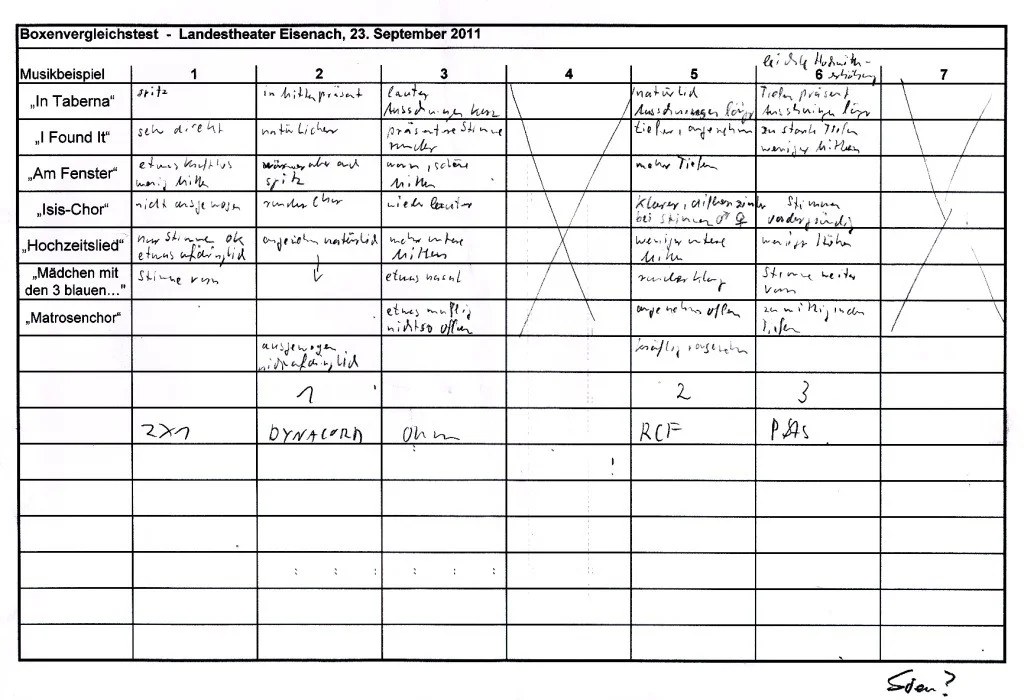 Boxenvergleichstest - Landestheater Eisenach, 23. September 2011
leichte
Musikbeispiel 1 2 3 4 5 6 7
„In Taberna“ spitz in Mitten präsent lauter natürlich Tiefen präsent
Ausschwingen kurz Ausschwingen länger Ausschwingen länger
„I Found It“ sehr direkt natürlicher präsentere Stimme tiefer, angenehm zu starke Tiefen
runder weniger Mitten
„Am Fenster“ etwas kraftlos aber auch warm, schöne mehr Tiefen
wenig Mitten spitz Mitten
„Isis-Chor“ nicht ausgewogen runder Chor wieder lauter klarer, differenzierter Stimmen
bei Stimmen ♂ ♀ vordergründig
„Hochzeitslied“ nur Stimme ok angenehm natürlich mehr untere weniger untere weniger Höhen
etwas aufdringlich Mitten Mitten
„Mädchen mit den 3 blauen...“ Stimme vorn ↓ etwas nasal runder Klang Stimme weiter
vorn
„Matrosenchor“ etwas muffig angenehm offen zu mittig in den
nicht so offen Tiefen
ausgewogen kräftig, angenehm
nicht aufdringlich
1 2 3
2X1 DYNACORD Ohm RCF